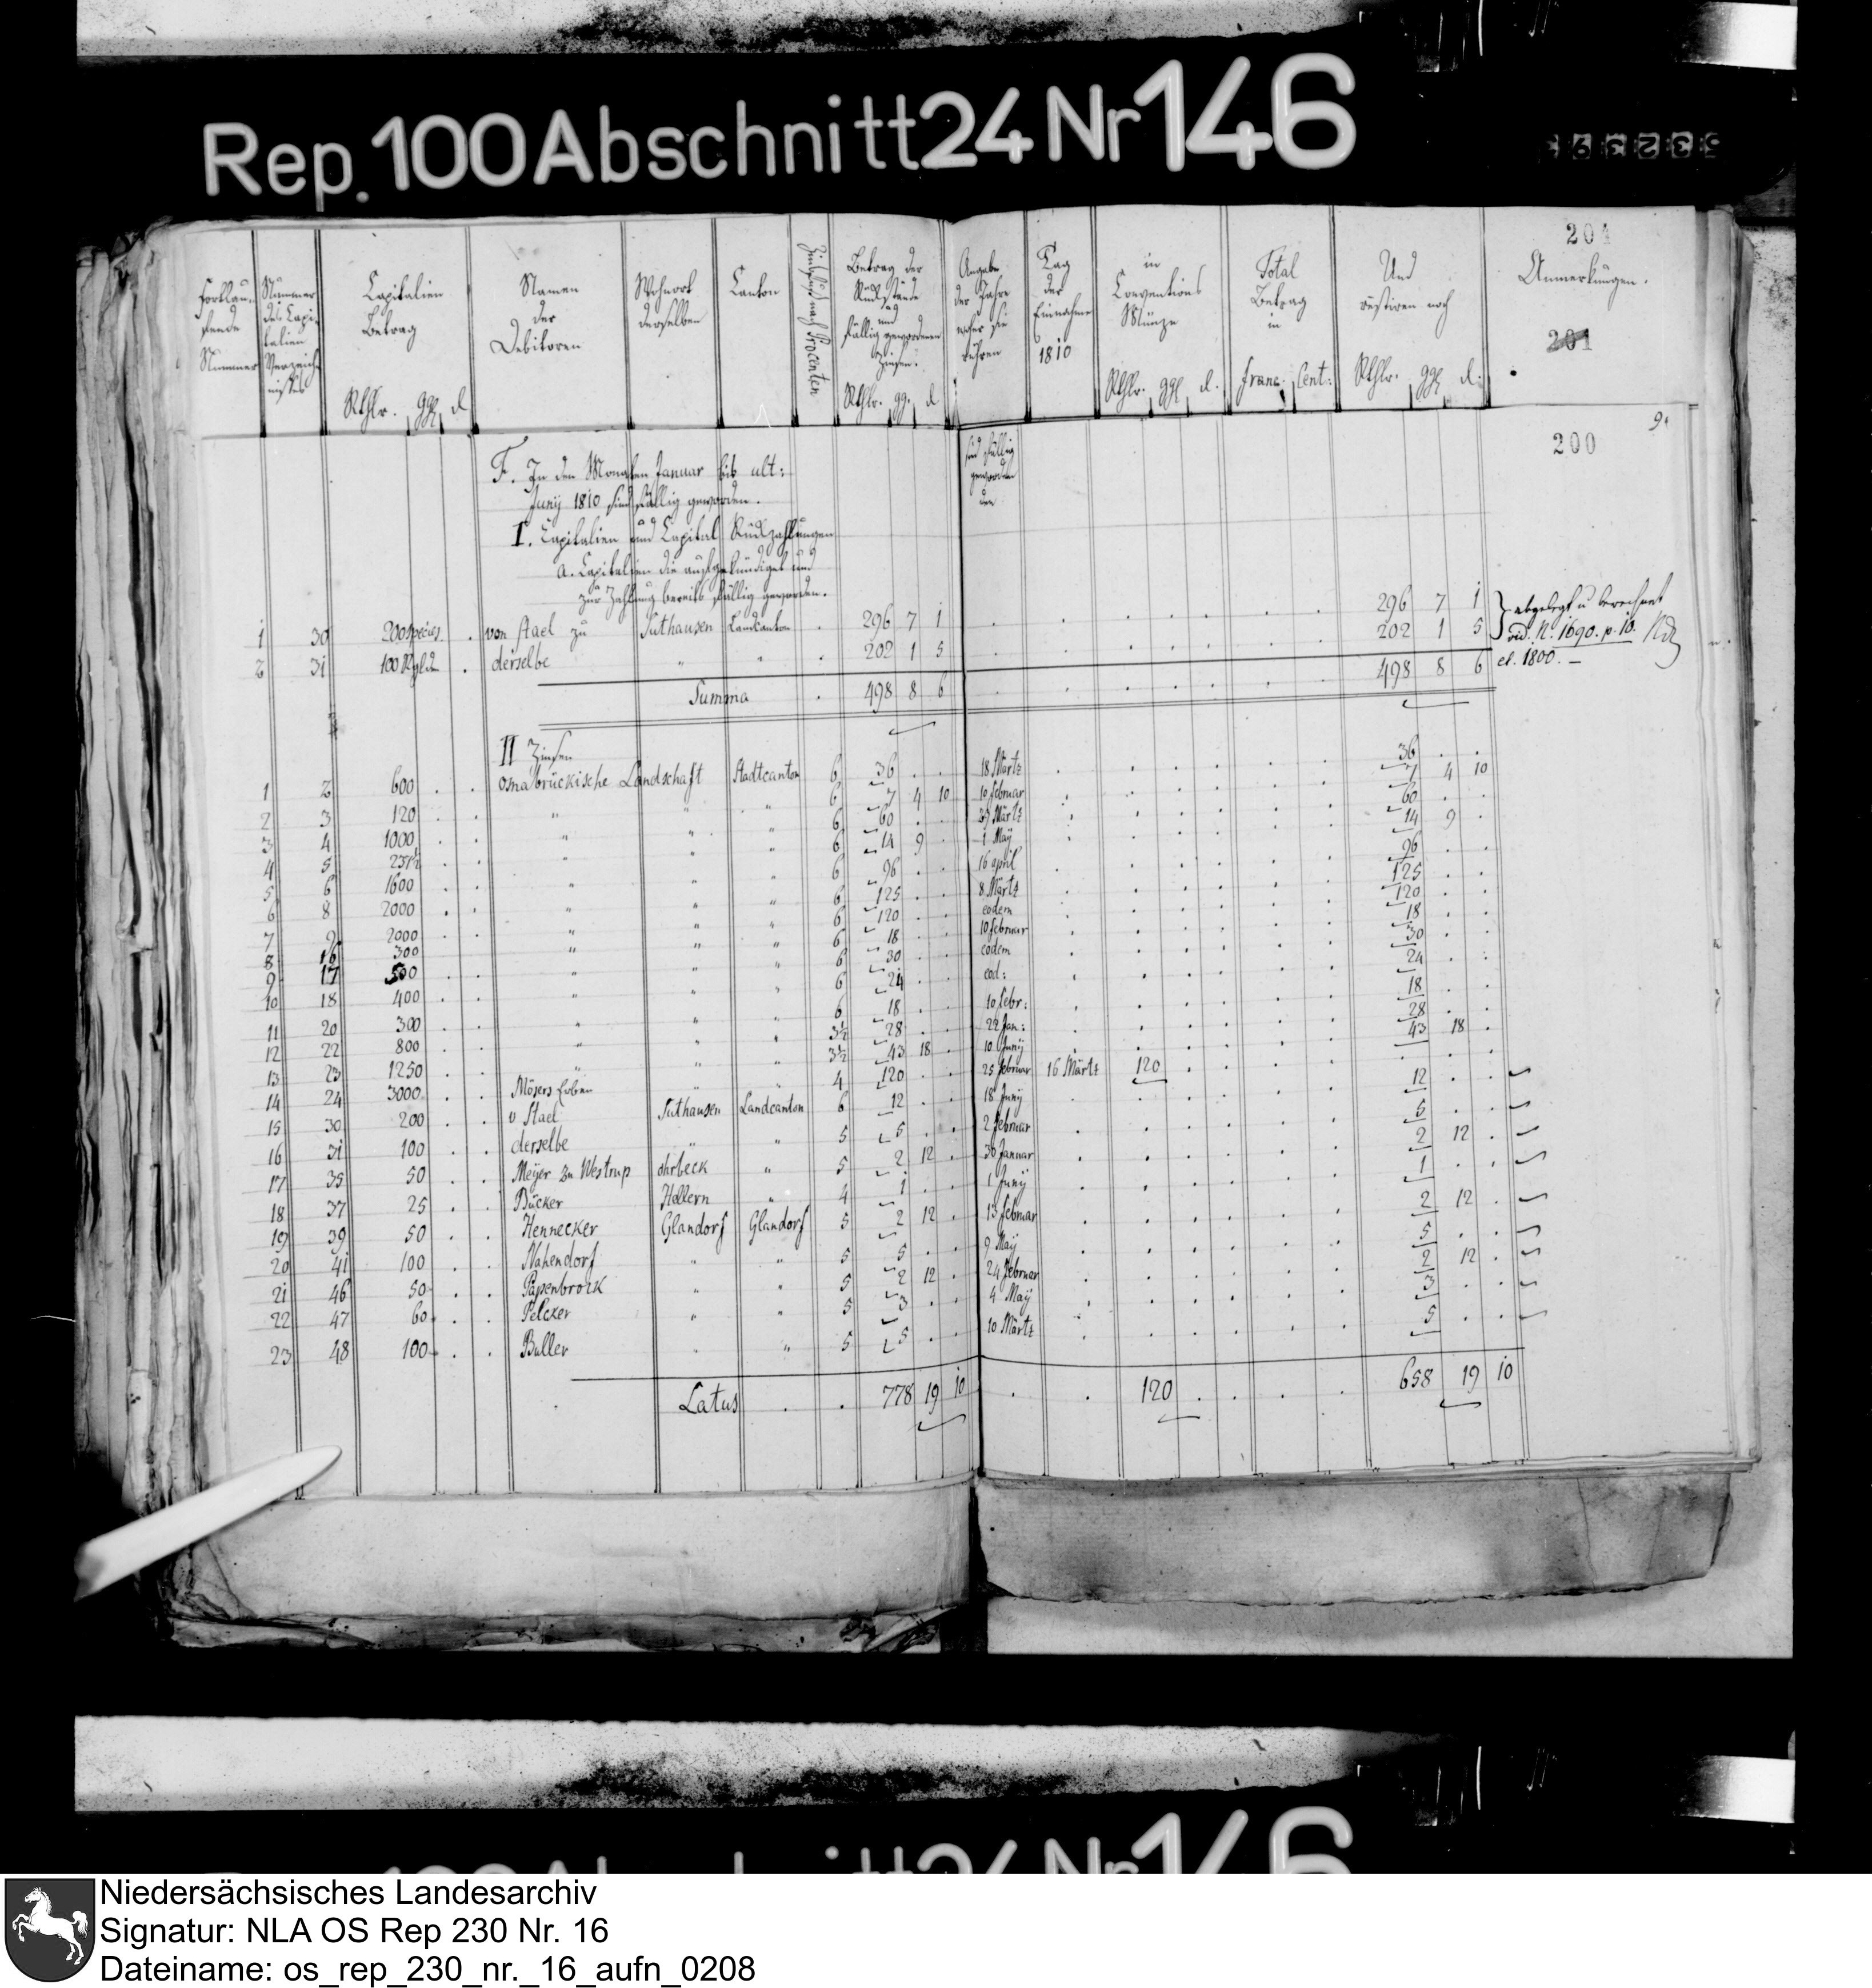 Rep. 100 Abschnitt 24 Nr 146
204
Fortlaufende Nummer
Nummer des Capitalien Verzeichnisses
Capitalien Betrag
Rthlr. ggl d
Namen der Debitoren
Wohnort derselben
Canton
Zinsfuß nach Procenten
Betrag der Rückstände und fällig gewordenen Zinsen.
Rthlr. gg. d
Angabe der Jahre woher sie rühren
Tag der Einnahme 1810
in Conventions Münze
Rthlr. ggl d.
Total Betrag in
franc. Cent:
Und restiren noch
Rthlr. ggl d.
Anmerkungen.
201
200
9.
F. In den Monathen Januar bis ult:
Juny 1810 sind fällig geworden.
sind fällig geworden den
I. Capitalien und Capital Rückzahlungen
a. Capitalien die aufgekündiget und
zur Zahlung bereits fällig geworden.
1 30 200 Species. von Stael zu Suthausen Landcanton 296 7 1 296 7 1 abgelegt u berechnet
2 31 100 derselbe " " 202 1 5 202 1 5 vid. N. 1690. p. 10.
el. 1800. —
Summa 498 8 6 498 8 6
II Zinsen
1 2 600 Osnabrückische Landschaft Stadtcanton 6 36 18 Märtz 36
2 3 120 " " " 6 7 4 10 10 februar 7 4 10
3 4 1000 " " " 6 60 Märtz 60
4 5 237½ " " " 6 14 9 1 May 14 9
5 6 1600 " " " 6 96 16 april 96
6 8 2000 " " " 6 125 8 Märtz 125
7 9 2000 " " " 6 120 eodem 120
8 16 300 " " " 6 18 10 februar 18
9 17 500 " " " 6 30 eodem 30
10 18 400 " " " 6 24 eod: 24
11 20 300 " " " 6 18 10 febr: 18
12 22 800 " " " 3½ 28 22 Jan: 28
13 23 1250 " " " 3½ 43 18 10 Juny 43 18
14 24 3000 Mösers Erben " " 4 120 25 februar 16 Märtz 120
15 30 200 v Stael Suthausen Landcanton 6 12 18 Juny 12
16 31 100 derselbe " " 5 5 2 februar 5
17 35 50 Meyer zu Westrup ohrbeck " 5 2 12 30 Januar 2 12
18 37 25 Bücker Hellern " 4 1 1 Juny 1
19 39 50 Hennecker Glandorf Glandorf 5 2 12 13 februar 2 12
20 41 100 Nahendorf " " 5 5 9 May 5
21 46 50 Papenbrock " " 5 2 12 24 februar 2 12
22 47 60 Pelcker " " 5 3 4 May 3
23 48 100 Buller " " 5 5 10 Märtz 5
Latus 778 19 10 120 658 19 10
Niedersächsisches Landesarchiv
Signatur: NLA OS Rep 230 Nr. 16
Dateiname: os_rep_230_nr._16_aufn_0208